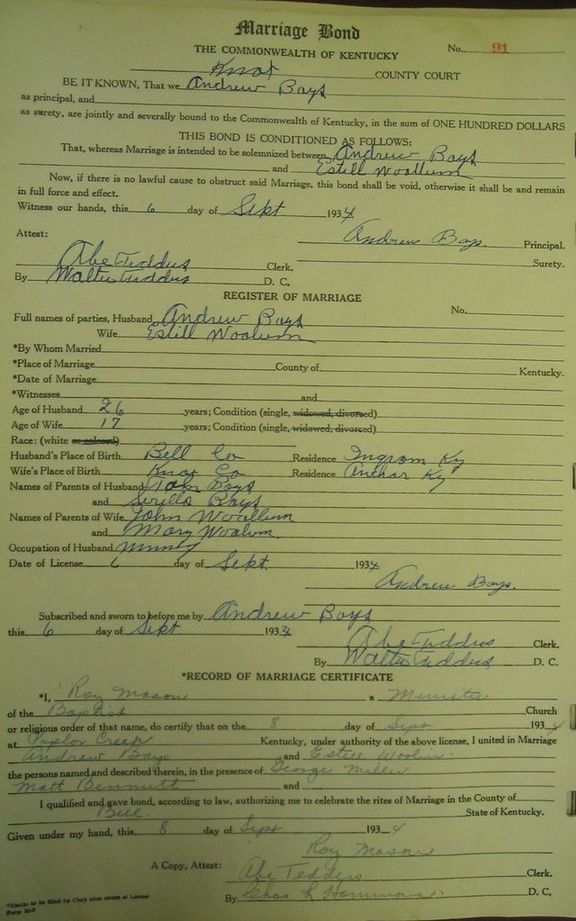 Marriage Bond
No. 91
THE COMMONWEALTH OF KENTUCKY
Knox COUNTY COURT
BE IT KNOWN, That we Andrew Bays
as principal, and
as surety, are jointly and severally bound to the Commonwealth of Kentucky, in the sum of ONE HUNDRED DOLLARS
THIS BOND IS CONDITIONED AS FOLLOWS:
That, whereas Marriage is intended to be solemnized between Andrew Bays
and Estill Woollum
Now, if there is no lawful cause to obstruct said Marriage, this bond shall be void, otherwise it shall be and remain
in full force and effect.
Witness our hands, this 6 day of Sept 1934
Andrew Bays Principal.
Attest:
Surety.
Abe Tiddus Clerk.
By Walter Tiddus D. C.
REGISTER OF MARRIAGE
No.
Full names of parties, Husband Andrew Bays
Wife Estill Woolum
*By Whom Married
*Place of Marriage County of Kentucky.
*Date of Marriage
*Witnesses and
Age of Husband 26 years; Condition (single, widowed, divorced)
Age of Wife 17 years; Condition (single, widowed, divorced)
Race: (white or colored)
Husband's Place of Birth Bell Co Residence Ingrom Ky
Wife's Place of Birth Knox Co Residence Ky
Names of Parents of Husband Bays
and Bays
Names of Parents of Wife John Woollum
and Mary Woolum
Occupation of Husband
Date of License 6 day of Sept. 1934
Andrew Bays.
Subscribed and sworn to before me by Andrew Bays
this 6 day of Sept 1934
Abe Tiddus Clerk.
By Walter Tiddus D. C.
*RECORD OF MARRIAGE CERTIFICATE
*I, Roy Mason a Minister
of the Baptist Church
or religious order of that name, do certify that on the 8 day of Sept 1934
at Creek Kentucky, under authority of the above license, I united in Marriage
Andrew Bays and Estell Woolin
the persons named and described therein, in the presence of George Miller
Matt Bennett and
I qualified and gave bond, according to law, authorizing me to celebrate the rites of Marriage in the County of
Bell. State of Kentucky.
Given under my hand, this 8 day of Sept 1934
Roy Mason
A Copy, Attest: Abe Tedders Clerk.
By D. C.
*Blanks to be filled by Clerk after return of License